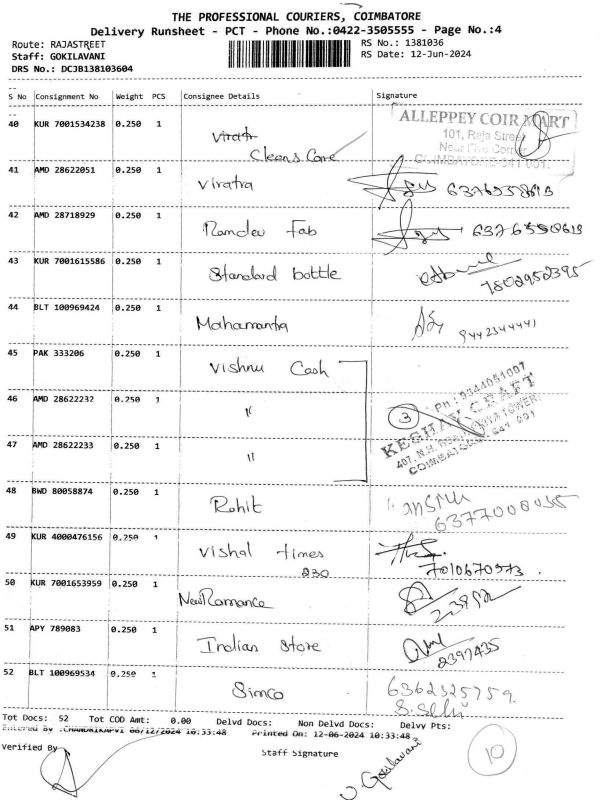 THE PROFESSIONAL COURIERS, COIMBATORE
Delivery Runsheet - PCT - Phone No.:0422-3505555 - Page No.:4
Route: RAJASTREET
RS No.: 1381036
Staff: GOKILAVANI
RS Date: 12-Jun-2024
DRS No.: DCJB138103604
S No Consignment No Weight PCS Consignee Details Signature
40 KUR 7001534238 0.250 1 Cleens Care
ALLEPPEY COIR MART
101, Raja Street
Near Five Corner
COIMBATORE-641 001.
41 AMD 28622051 0.250 1 Viratra
42 AMD 28718929 0.250 1 Ramdev Fab
43 KUR 7001615586 0.250 1 Standard bottle 7802952395
44 BLT 100969424 0.250 1 Mahamantra 9442344441
45 PAK 333206 0.250 1 Vishnu Cash
46 AMD 28622232 0.250 1 "
3
Ph : 9344051007
KESHAV CRAFT
COIMBATORE-641 001
47 AMD 28622233 0.250 1 "
48 BWD 80058874 0.250 1 Rohit
49 KUR 4000476156 0.250 1 Vishal times 7010670973
230
50 KUR 7001653959 0.250 1 New Romance
51 APY 789083 0.250 1 Indian Store 2397435
52 BLT 100969534 0.250 1 Simco 6362325759
Tot Docs: 52 Tot COD Amt: 0.00 Delvd Docs: Non Delvd Docs: Delvy Pts:
Entered By :CHANDRIKAPVI 06/12/2024 10:33:48 Printed On: 12-06-2024 10:33:48
Verified By
Staff Signature
10